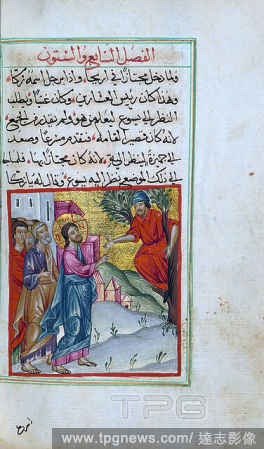 الفصل السابع والستون
ولما دخل مجتاز في اريحا واذا برجل اسمه زكا
وهذا كان رئيس العشارين وكان غنيا وطلب
النظر الى يسوع ليعلم من هو ولم يقدر من الجمع
لانه كان قصير القامه فتقدم مسرعا وصعد
الى جميزة لينظر اليه لانه كان مجتاز بها فلما
الى ذلك الموضع نظر اليه يسوع وقال له يا زكا
TPG
www.tpgnews.com/達志影像